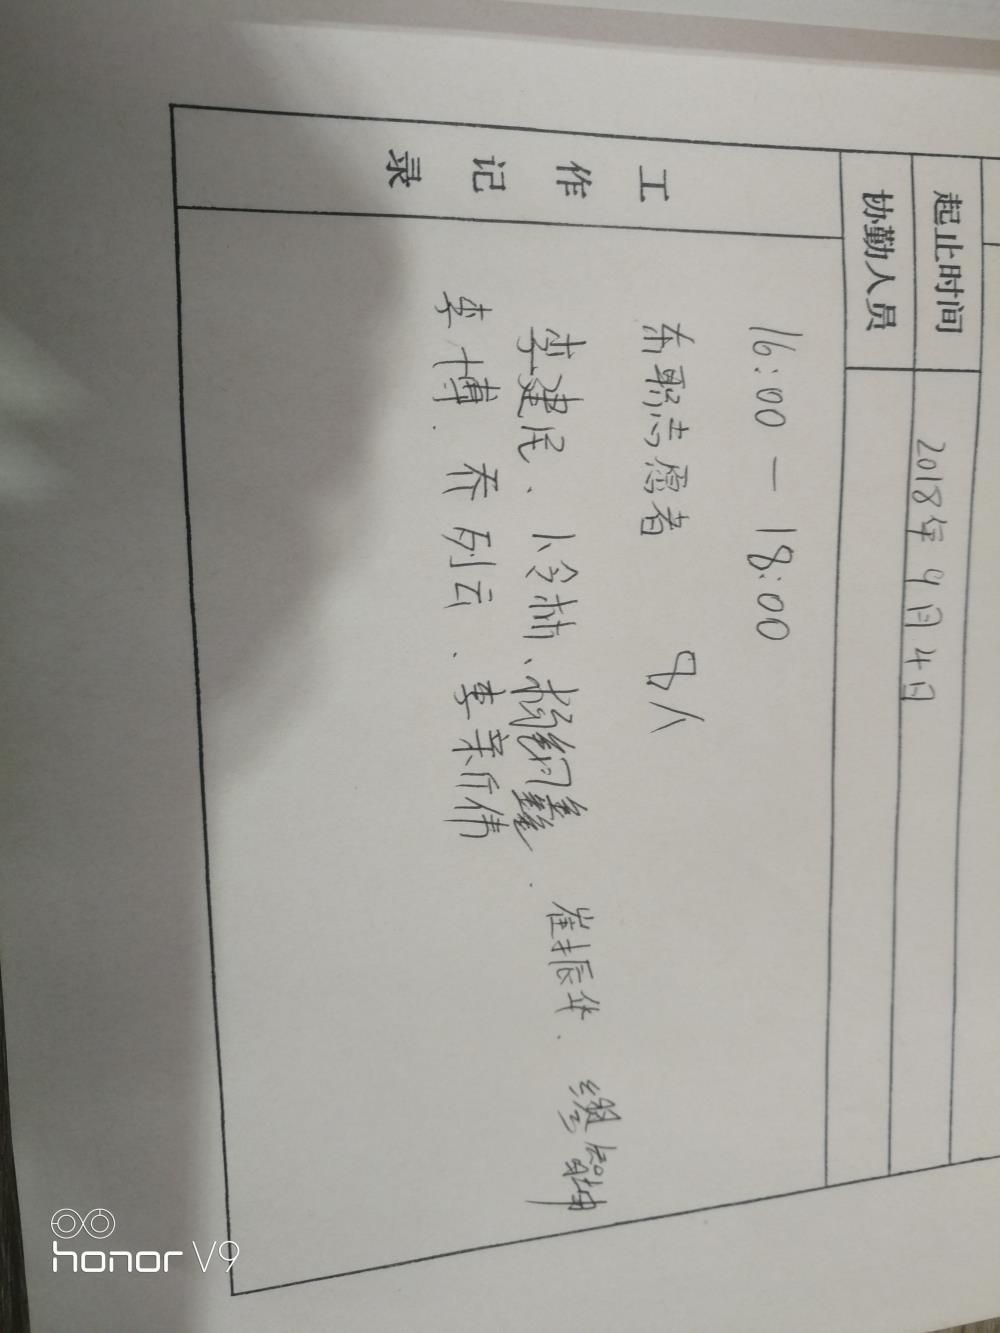 起止时间 2018年9月4日
协勤人员
工作记录
16:00 — 18:00
东职志愿者 8人
李建民、卜令林、杨纲 崔振华、 智坤
李博、乔列云、李亲伟
honor V9